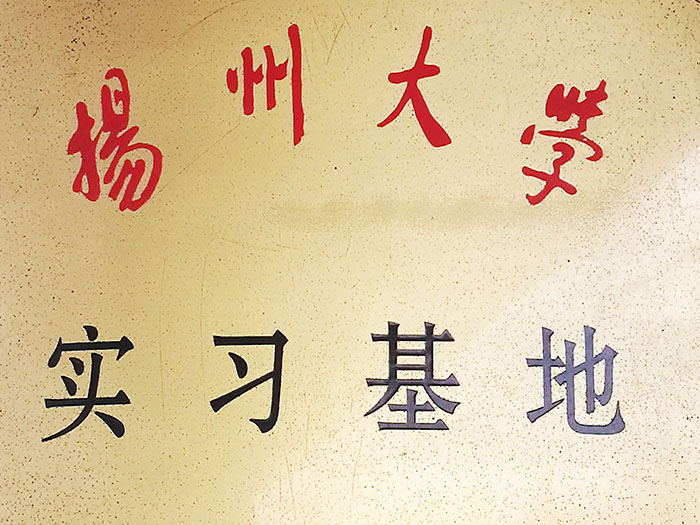 揚州大学
实习基地